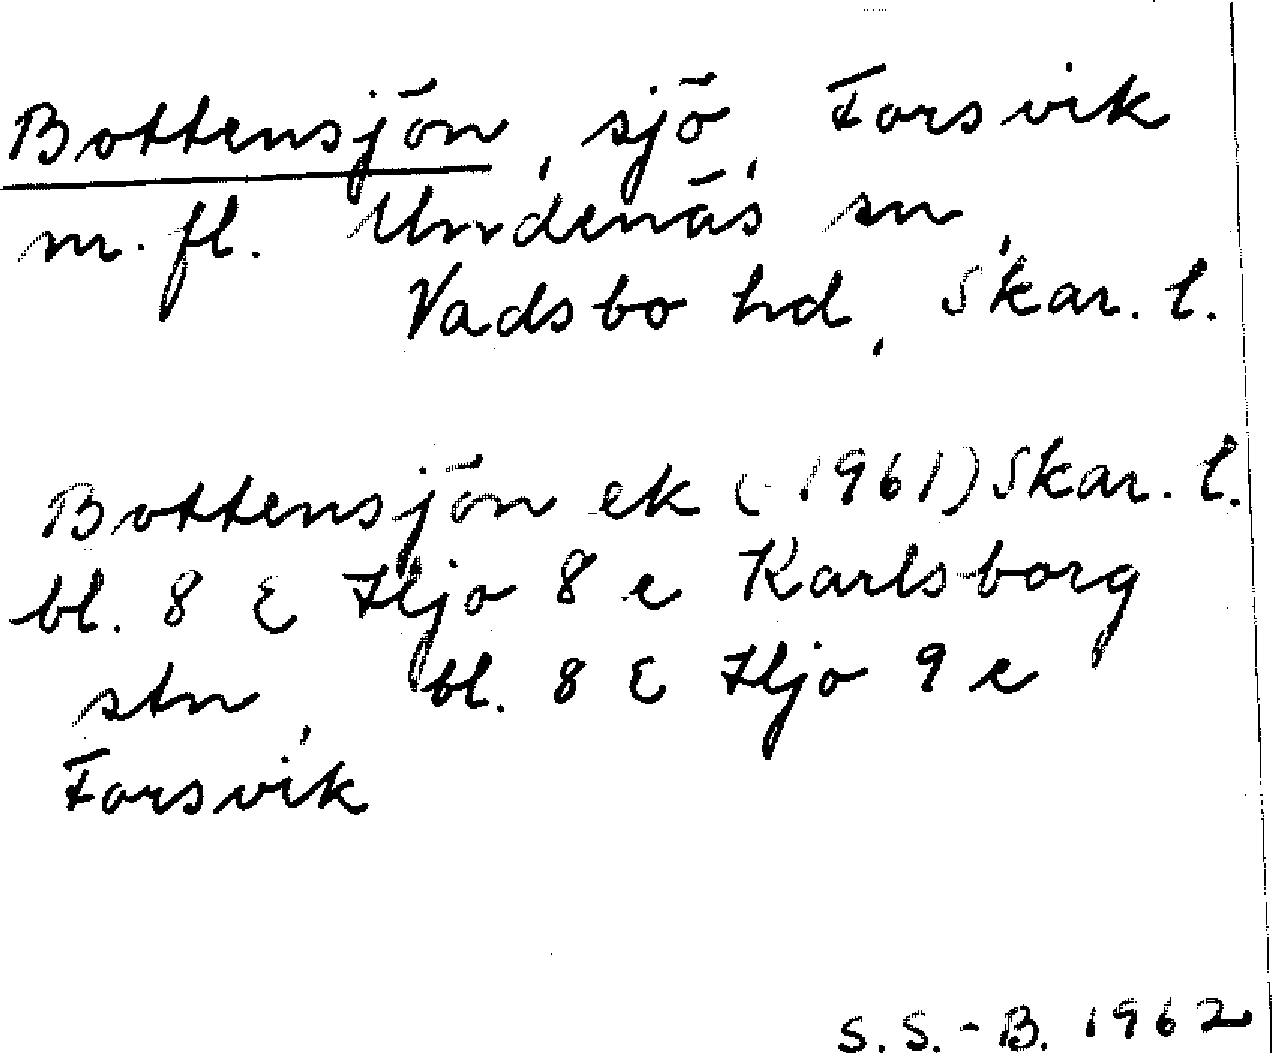 Bottensjön, sjö, Forsvik
m.fl. Undenäs sn,
Vadsbo hd, Skar. l.
Bottensjön ek (1961) Skar. l.
bl. 8 E Hjo 8 e Karlsborg
stn, bl. 8 E Hjo 9 e
Forsvik
S. S.-B. 1962